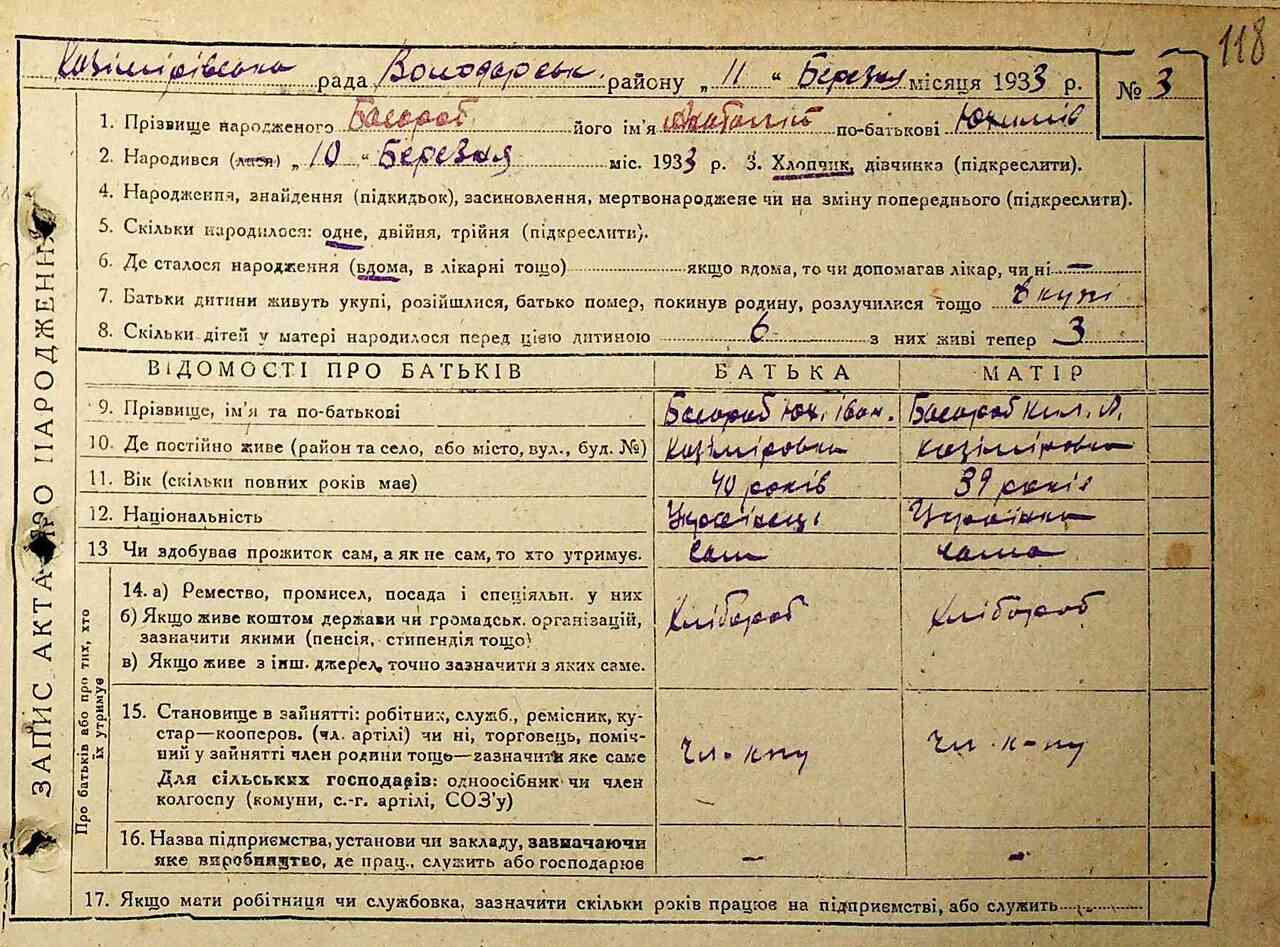 118
Казімірівська рада Володарськ. району „ 11 “ Березня місяця 1933 р.
№ 3
1. Прізвище народженого Басараб його ім'я Анатолій по-батькові Юхимів
2. Народився (лася) „ 10 “ Березня міс. 1933 р. 3. Хлопчик, дівчинка (підкреслити).
4. Народження, знайдення (підкидьок), засиновлення, мертвонароджене чи на зміну попереднього (підкреслити).
5. Скільки народилося: одне, двійня, трійня (підкреслити).
6. Де сталося народження (вдома, в лікарні тощо) якщо вдома, то чи допомагав лікар, чи ні —
7. Батьки дитини живуть укупі, розійшлися, батько помер, покинув родину, розлучилися тощо Вкупі
8. Скільки дітей у матері народилося перед цією дитиною 6 з них живі тепер 3
ВІДОМОСТІ ПРО БАТЬКІВ БАТЬКА МАТІР
9. Прізвище, ім'я та по-батькові Басараб Юх. Іван. Басараб
10. Де постійно живе (район та село, або місто, вул., буд. №) Казіміровка Казіміровка
11. Вік (скільки повних років має) 40 років 39 років
12. Національність Українець Українка
13 Чи здобуває прожиток сам, а як не сам, то хто утримує. Сам сама
14. а) Ремество, промисел, посада і спеціяльн. у них
б) Якщо живе коштом держави чи громадськ. організацій,
зазначити якими (пенсія, стипендія тощо) Хлібороб Хлібороб
в) Якщо живе з інш. джерел, точно зазначити з яких саме.
15. Становище в зайнятті: робітник, служб., ремісник, ку-
стар—кооперов. (чл. артілі) чи ні, торговець, поміч-
ний у зайнятті член родини тощо—зазначити яке саме Чл. к-пу Чл. к-пу
Для сільських господарів: одноосібник чи член
колгоспу (комуни, с.-г. артілі, СОЗ'у)
16. Назва підприємства, установи чи закладу, зазначаючи
яке виробництво, де прац., служить або господарює — —
17. Якщо мати робітниця чи службовка, зазначити скільки років працює на підприємстві, або служить
ЗАПИС АКТА ПРО НАРОДЖЕННЯ
Про батьків або про тих, хто
їх утримує